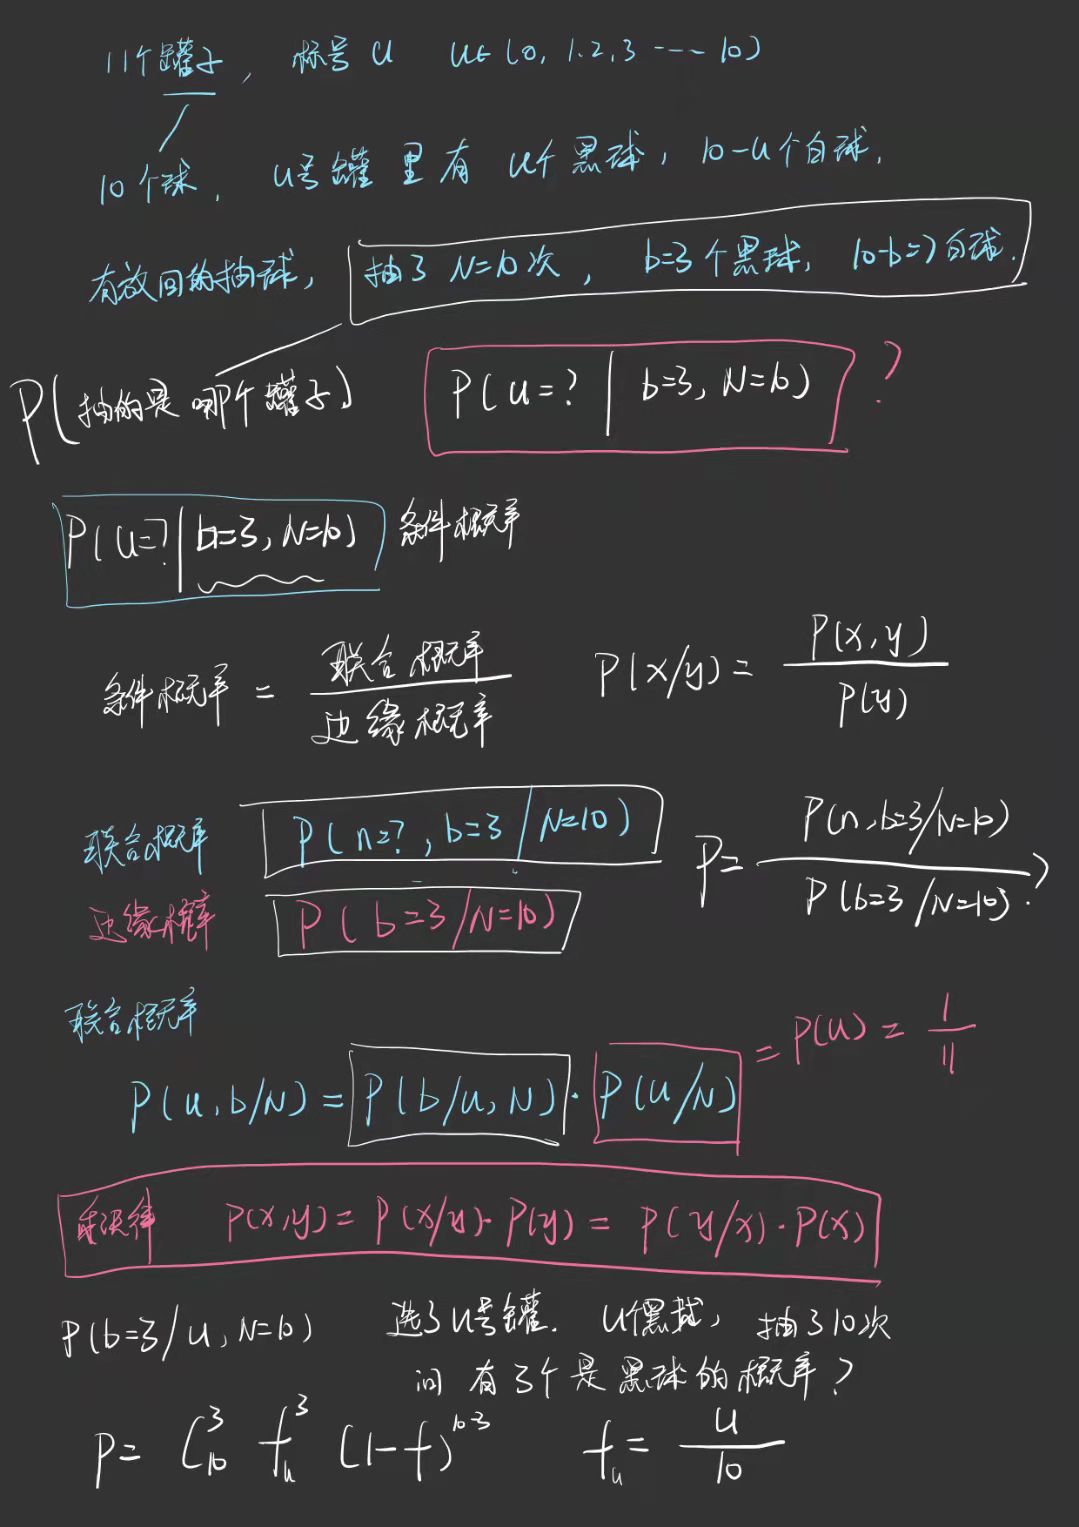 11个罐子, 标号 u u∈(0, 1.2,3 ---- 10)
10个球, u号罐里有 u个黑球, 10-u个白球,
有放回的抽球, 抽了 N=10次, b=3个黑球, 10-b=7白球.
P(抽的是哪个罐子) P(u=? | b=3, N=10) ?
P(u=?| b=3, N=10) 条件概率
条件概率 = 联合概率/边缘概率 P(x/y) = P(x,y)/P(y)
联合概率 P(n=?, b=3/N=10) P= P(n,b=3/N=10)/P(b=3/N=10) ?
边缘概率 P(b=3/N=10)
联合概率
P(u,b/N) = P(b/u,N)·P(u/N) = P(u) = 1/11
P(x,y) = P(x/y)·P(y) = P(y/x)·P(x)
P(b=3/u, N=10) 选了u号罐. u个黑球, 抽了10次
问有3个是黑球的概率?
P= C₁₀³ fᵤ³ (1-f)¹⁰⁻³ fᵤ = u/10